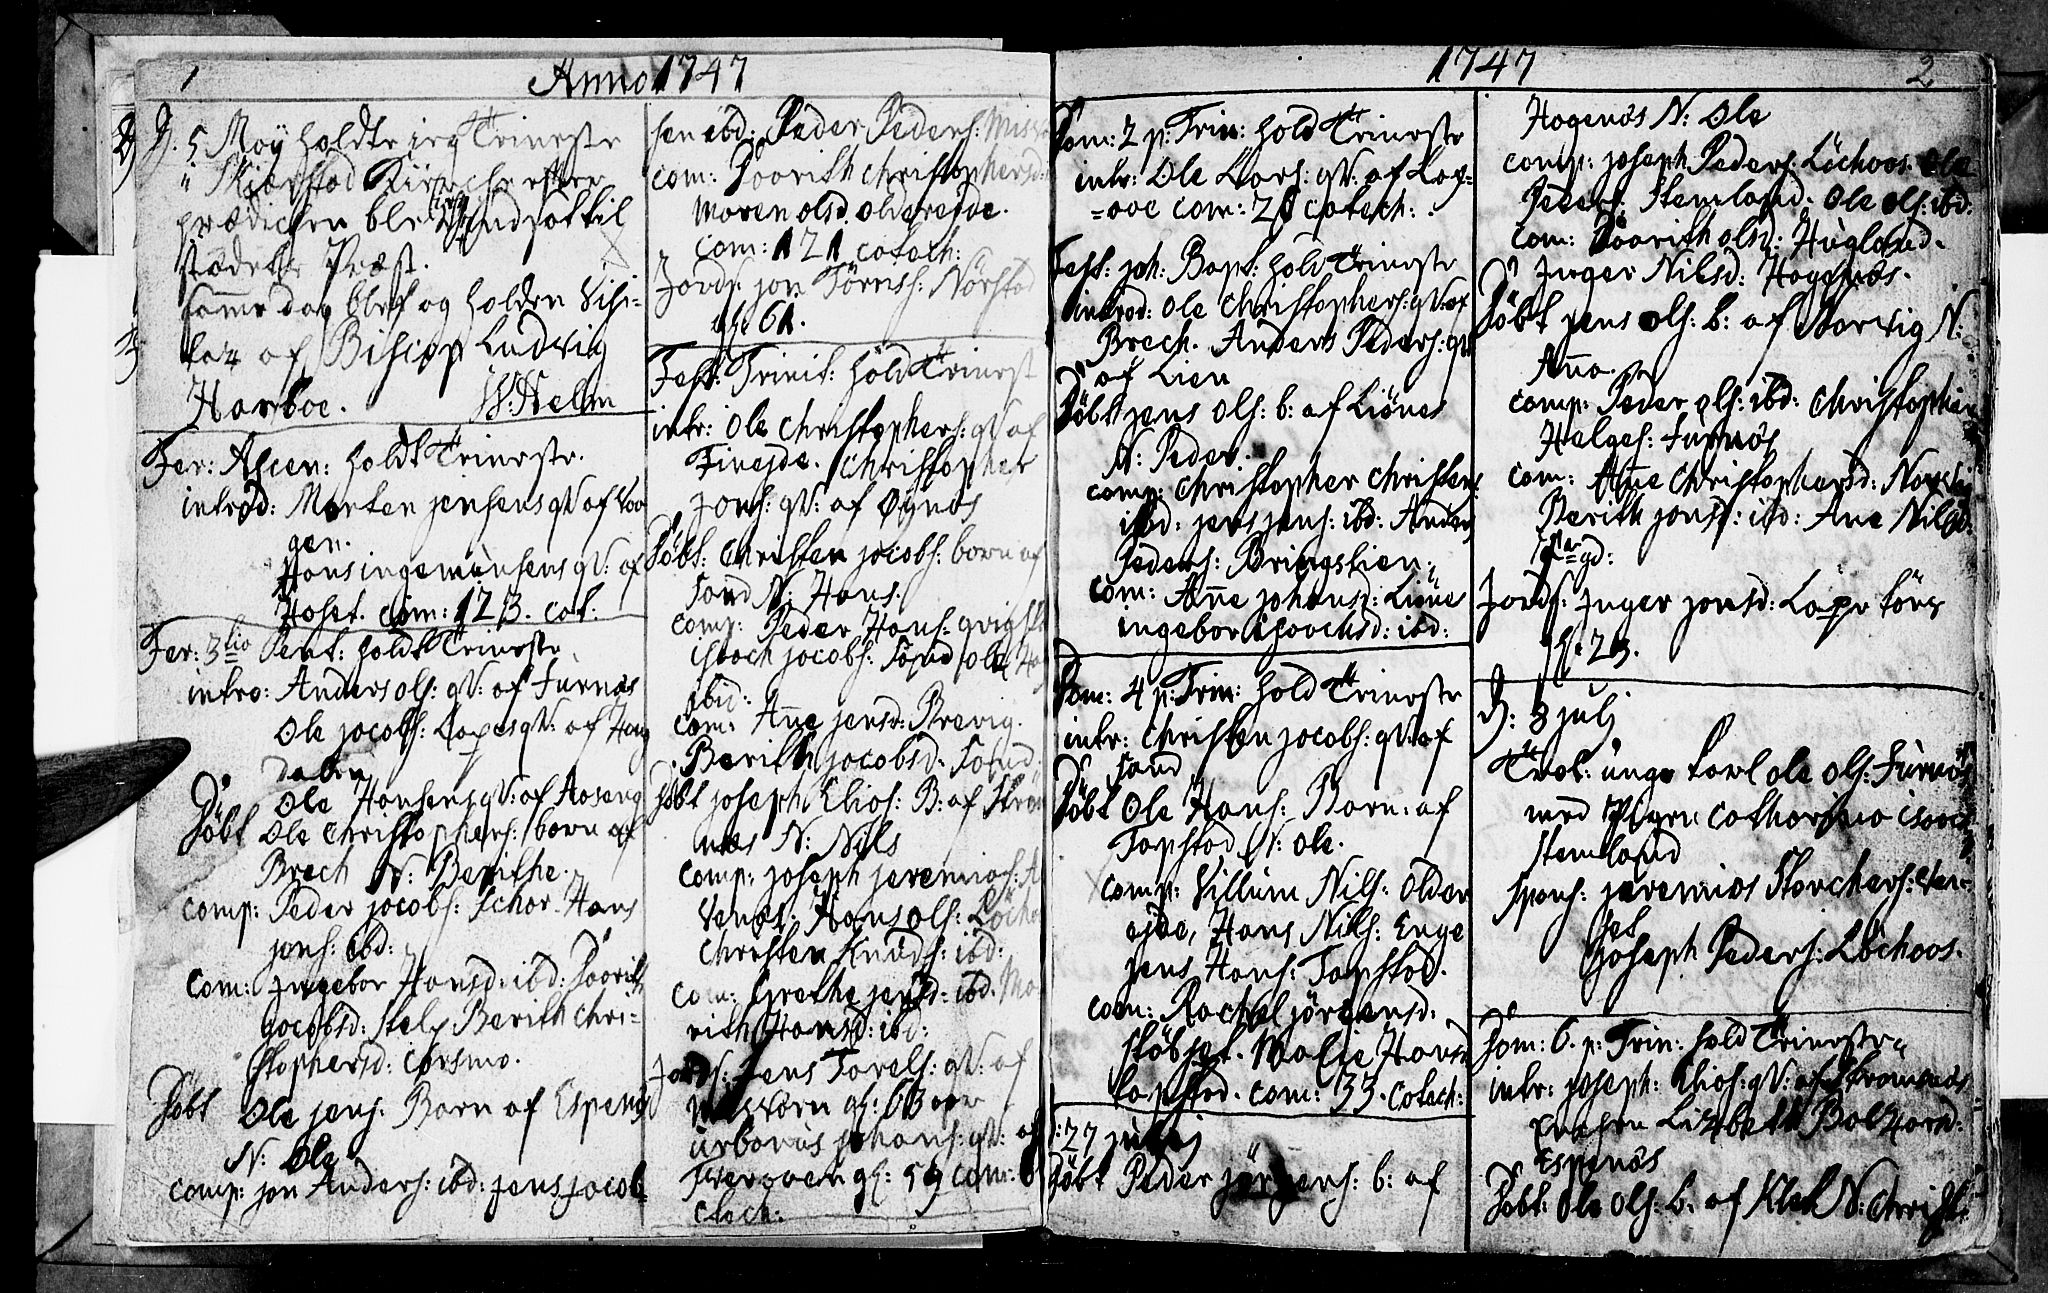 1
Anno 1747
D. 5 May holdte jeg Tieneste
i Skierstad Kircke efter
prædicken blef jeg indsat til
stædets Præst.
samme dag blef og holden Visi-
taz af Biscop Ludvig
Harboe. W: Helm
Fer: Ascen: holdt Tieneste.
introd: Morten jensens qv: af Vaa
gen.
Hans ingemunsens qv: af
Hoset. com: 123. cat:
Fer: 3tia Pent: holdt Tieneste
intro: Anders ols: qv: af Furnæs
Ole jacobs: Lapes qv: af Haug
dalen
Ole Hansens qv: af Aaseng
Döbt Ole Christophers: born af
Brech N: Berithe.
comp: Peder jacobs: schor. Hans
jens: ibd:
com: Ingebor Hansd: ibd: Daarith
jacobsd: Berith Chri-
stophersd: corsmo.
Döbt Ole jens: Barn af Espenæs
N: Ole
comp: jon Anders: ibd: jens jacob
sen ibd: Peder Peders:
com: Daarith Christophersd:
Maren olsd. oldereide.
com: 121 catech:
Jords: jon Törris: Nörstad
gl: 61.
Fest: Trinit: hold Tienest
intr: Ole Christophers: qv: af
Fineide. Christopher
Jons: qv: af Øynæs
Döbt: Christen jacobs: born af
Sand N: Hans.
comp: Peder Hans:
Isach jacobs: Sand Ole
ibid:
com: Anne jensd: Brevig.
Berith jacobsd. Sand.
Döbt joseph Elias: B: af Ström
næs N: Nils
comp: joseph jeremias:
Venæs: Hans ols: Löcho
Christen Knuds: ibd:
com: Grethe jensd: ibd.
rith Hansd: ibd:
Jords: Jens Torels: qv: af
gl: 63 aar
urbanus johans: qv: af
gl: 59 com: 6
catech:
1747
2
Dom: 2 p: Trin: hold Tieneste
intr: Ole Lars: qv: af Lap-
=aae com: 28 catech:
Fest: joh: Bapt: hold Tieneste
introd: Ole Christophers: qv: af
Brech. Anders Peders: qv
af Lien
Döbt jens ols: b: af Liönes
N: Peder.
comp: Christopher Christens:
ibd: jens jens: ibd: Anders
Peders: Bringslien.
com: Anne johansd: Liönes
ingebor Isaachsd: ibd:
Dom: 4 p: Trin: hold Tieneste
intr: Christen jacobs: qv: af
Sand
Döbt Ole Hans: Barn: af
Tapstad N: Ole.
comp: Villum Nils: Older
ejde, Hans Nils: Enge
jens Hans: Tapstad.
com: Rachel jörgensd:
Stöbset. Malie Hansd
tapstad. com: 33. catech:
D: 27 junij
Döbt Peder jörgens: b: af
Hagenæs N: Ole
comp: joseph Peders: Löchaas. Ole
Peders: Stemland. Ole ols: ibd:
com: Daarith olsd: Hugland.
Inger Nilsd: Hagenæs.
Döbt jens ols: b: af N:
Anna.
comp: Peder ols: ibd: Christophen
Helges: Furnæs
com: Ane Christophersd:
Berith jonsd: ibd: Ane Nilsd:
Jords: Inger jonsd: Lape
gl: 23.
D: 3 julj
Trol: unge karl ole ols: Furnæs
med Pigen Catharina isaacs
Stemland
spons: jeremias Storchers: Ven-
set
joseph Peders: Löchaas.
Dom: 6. p: Trin: hold Tieneste
intr: joseph: Elias: qv: af Strömnæs
Enchen Lizbeth Balzard:
Espenæs
Döbt: Ole Ols: b: af Klet N: Christ: